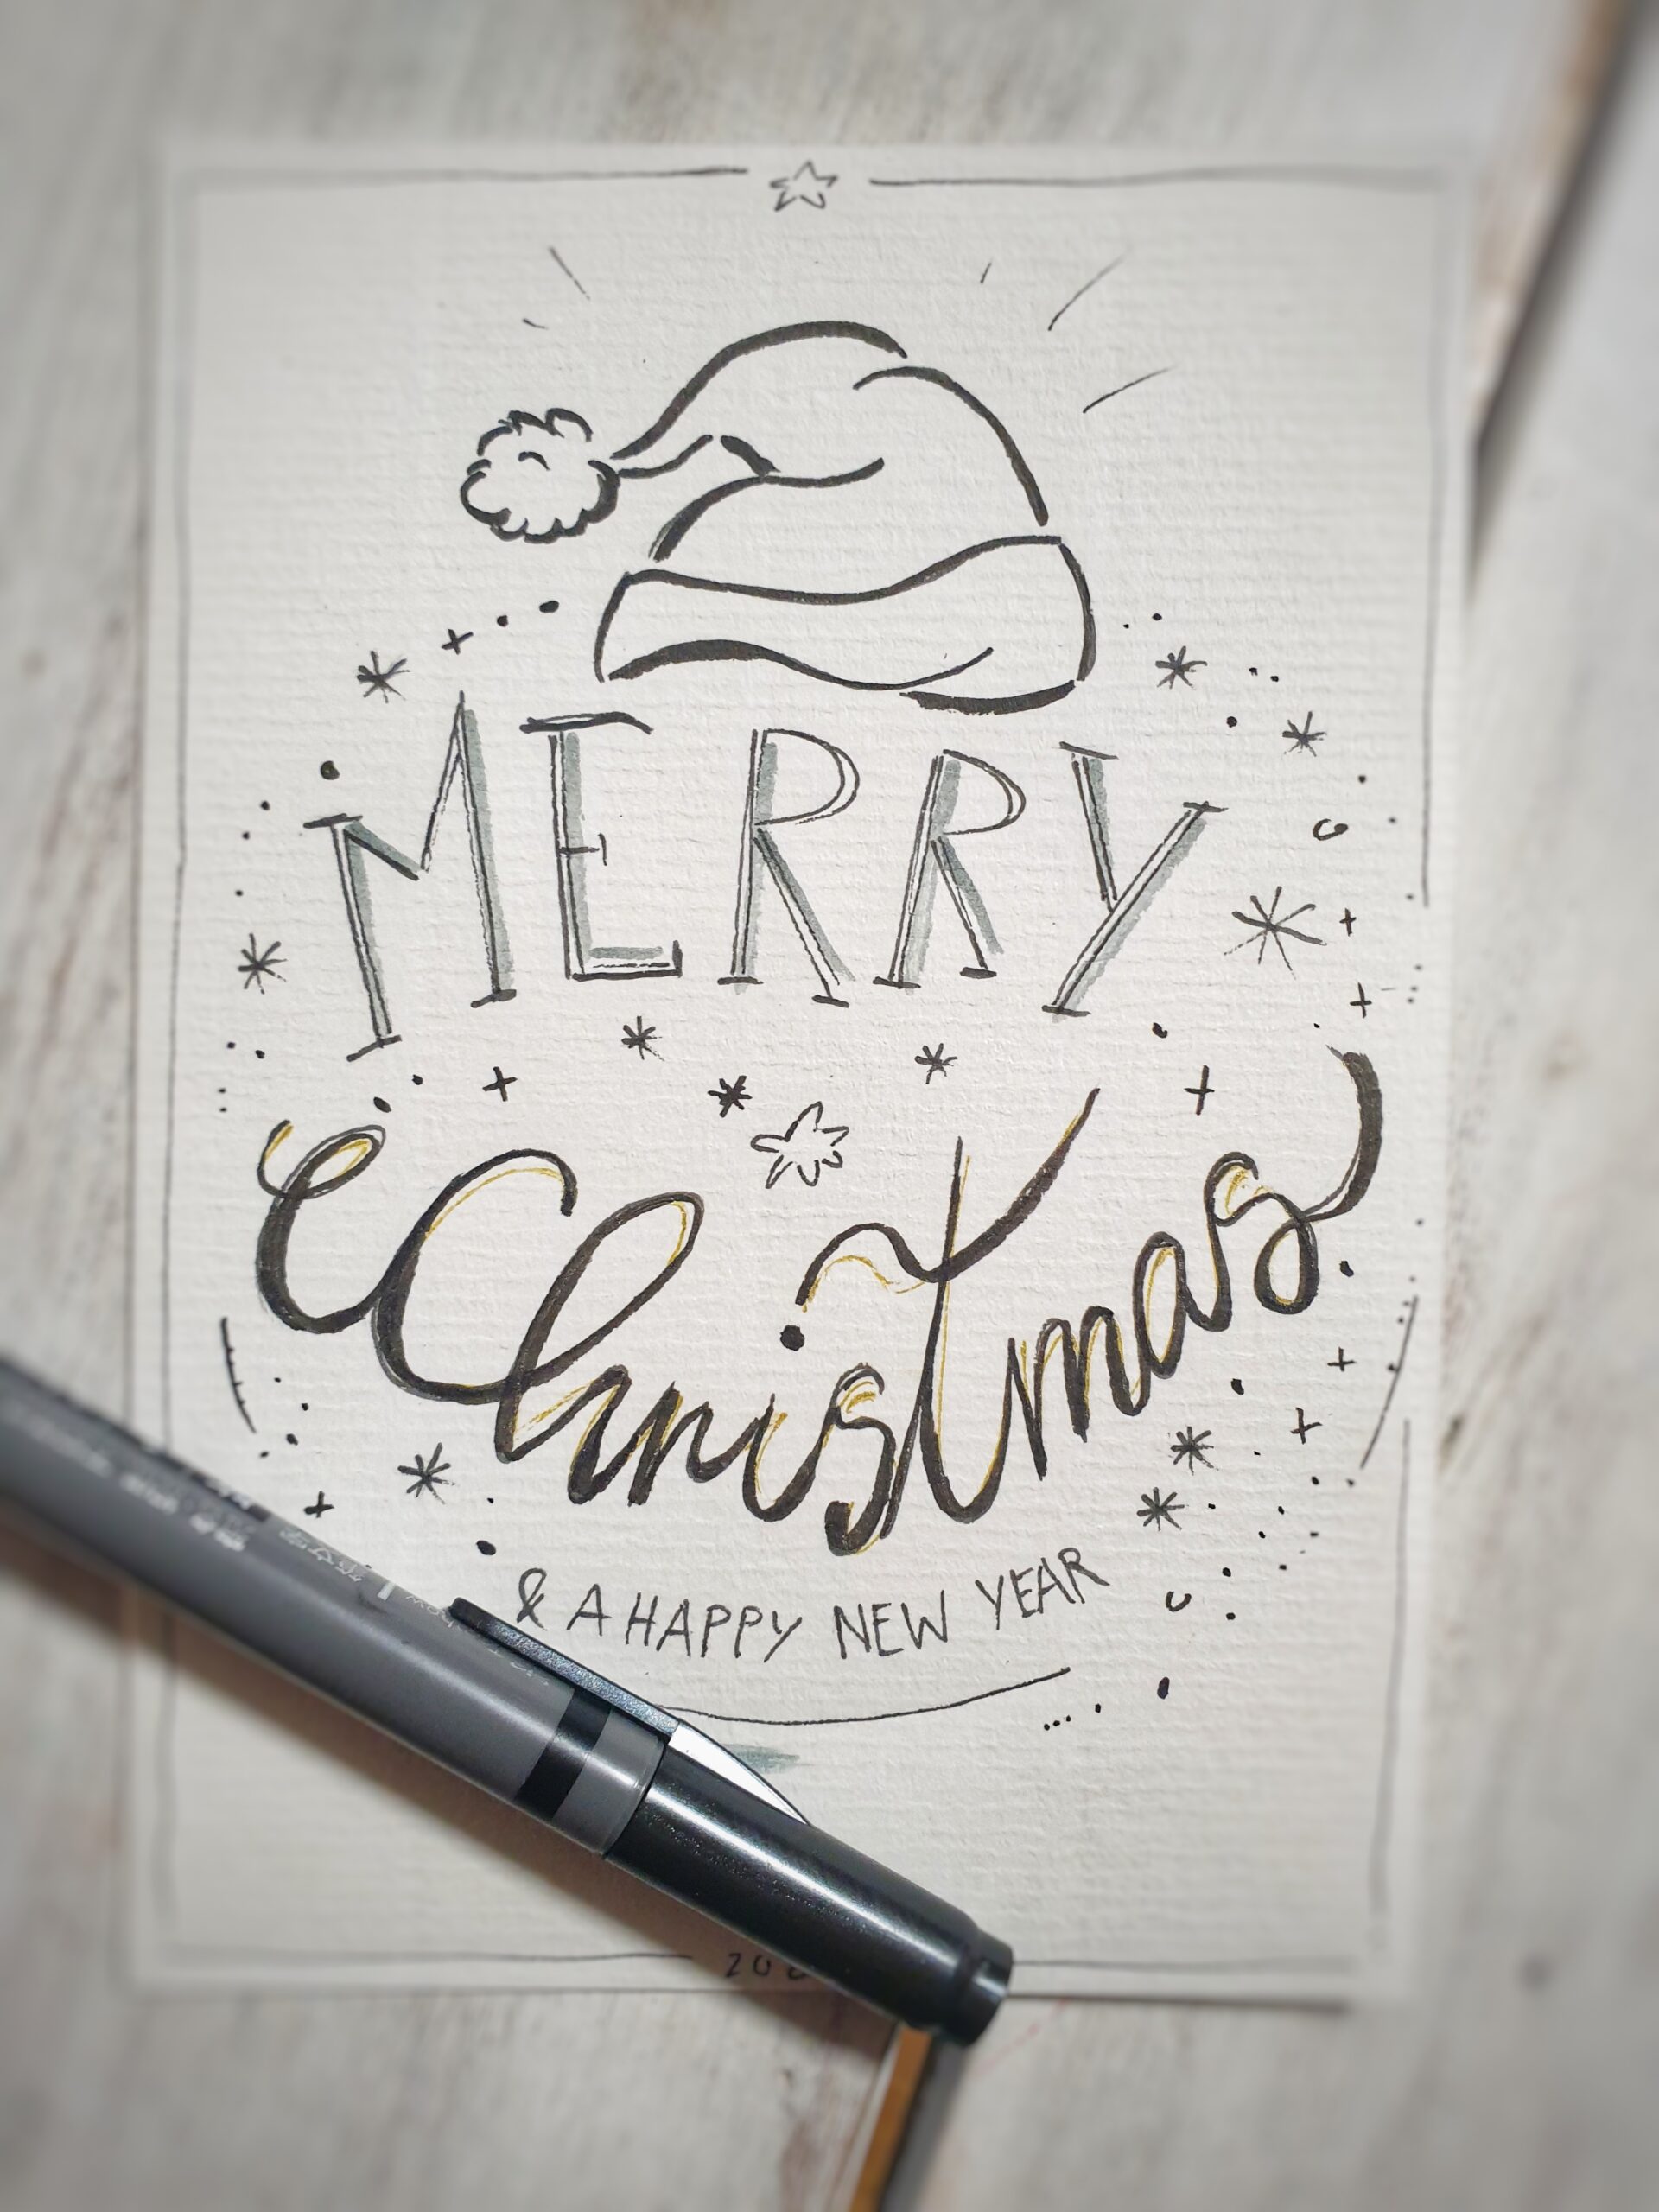 MERRY
Christmas
& A HAPPY NEW YEAR